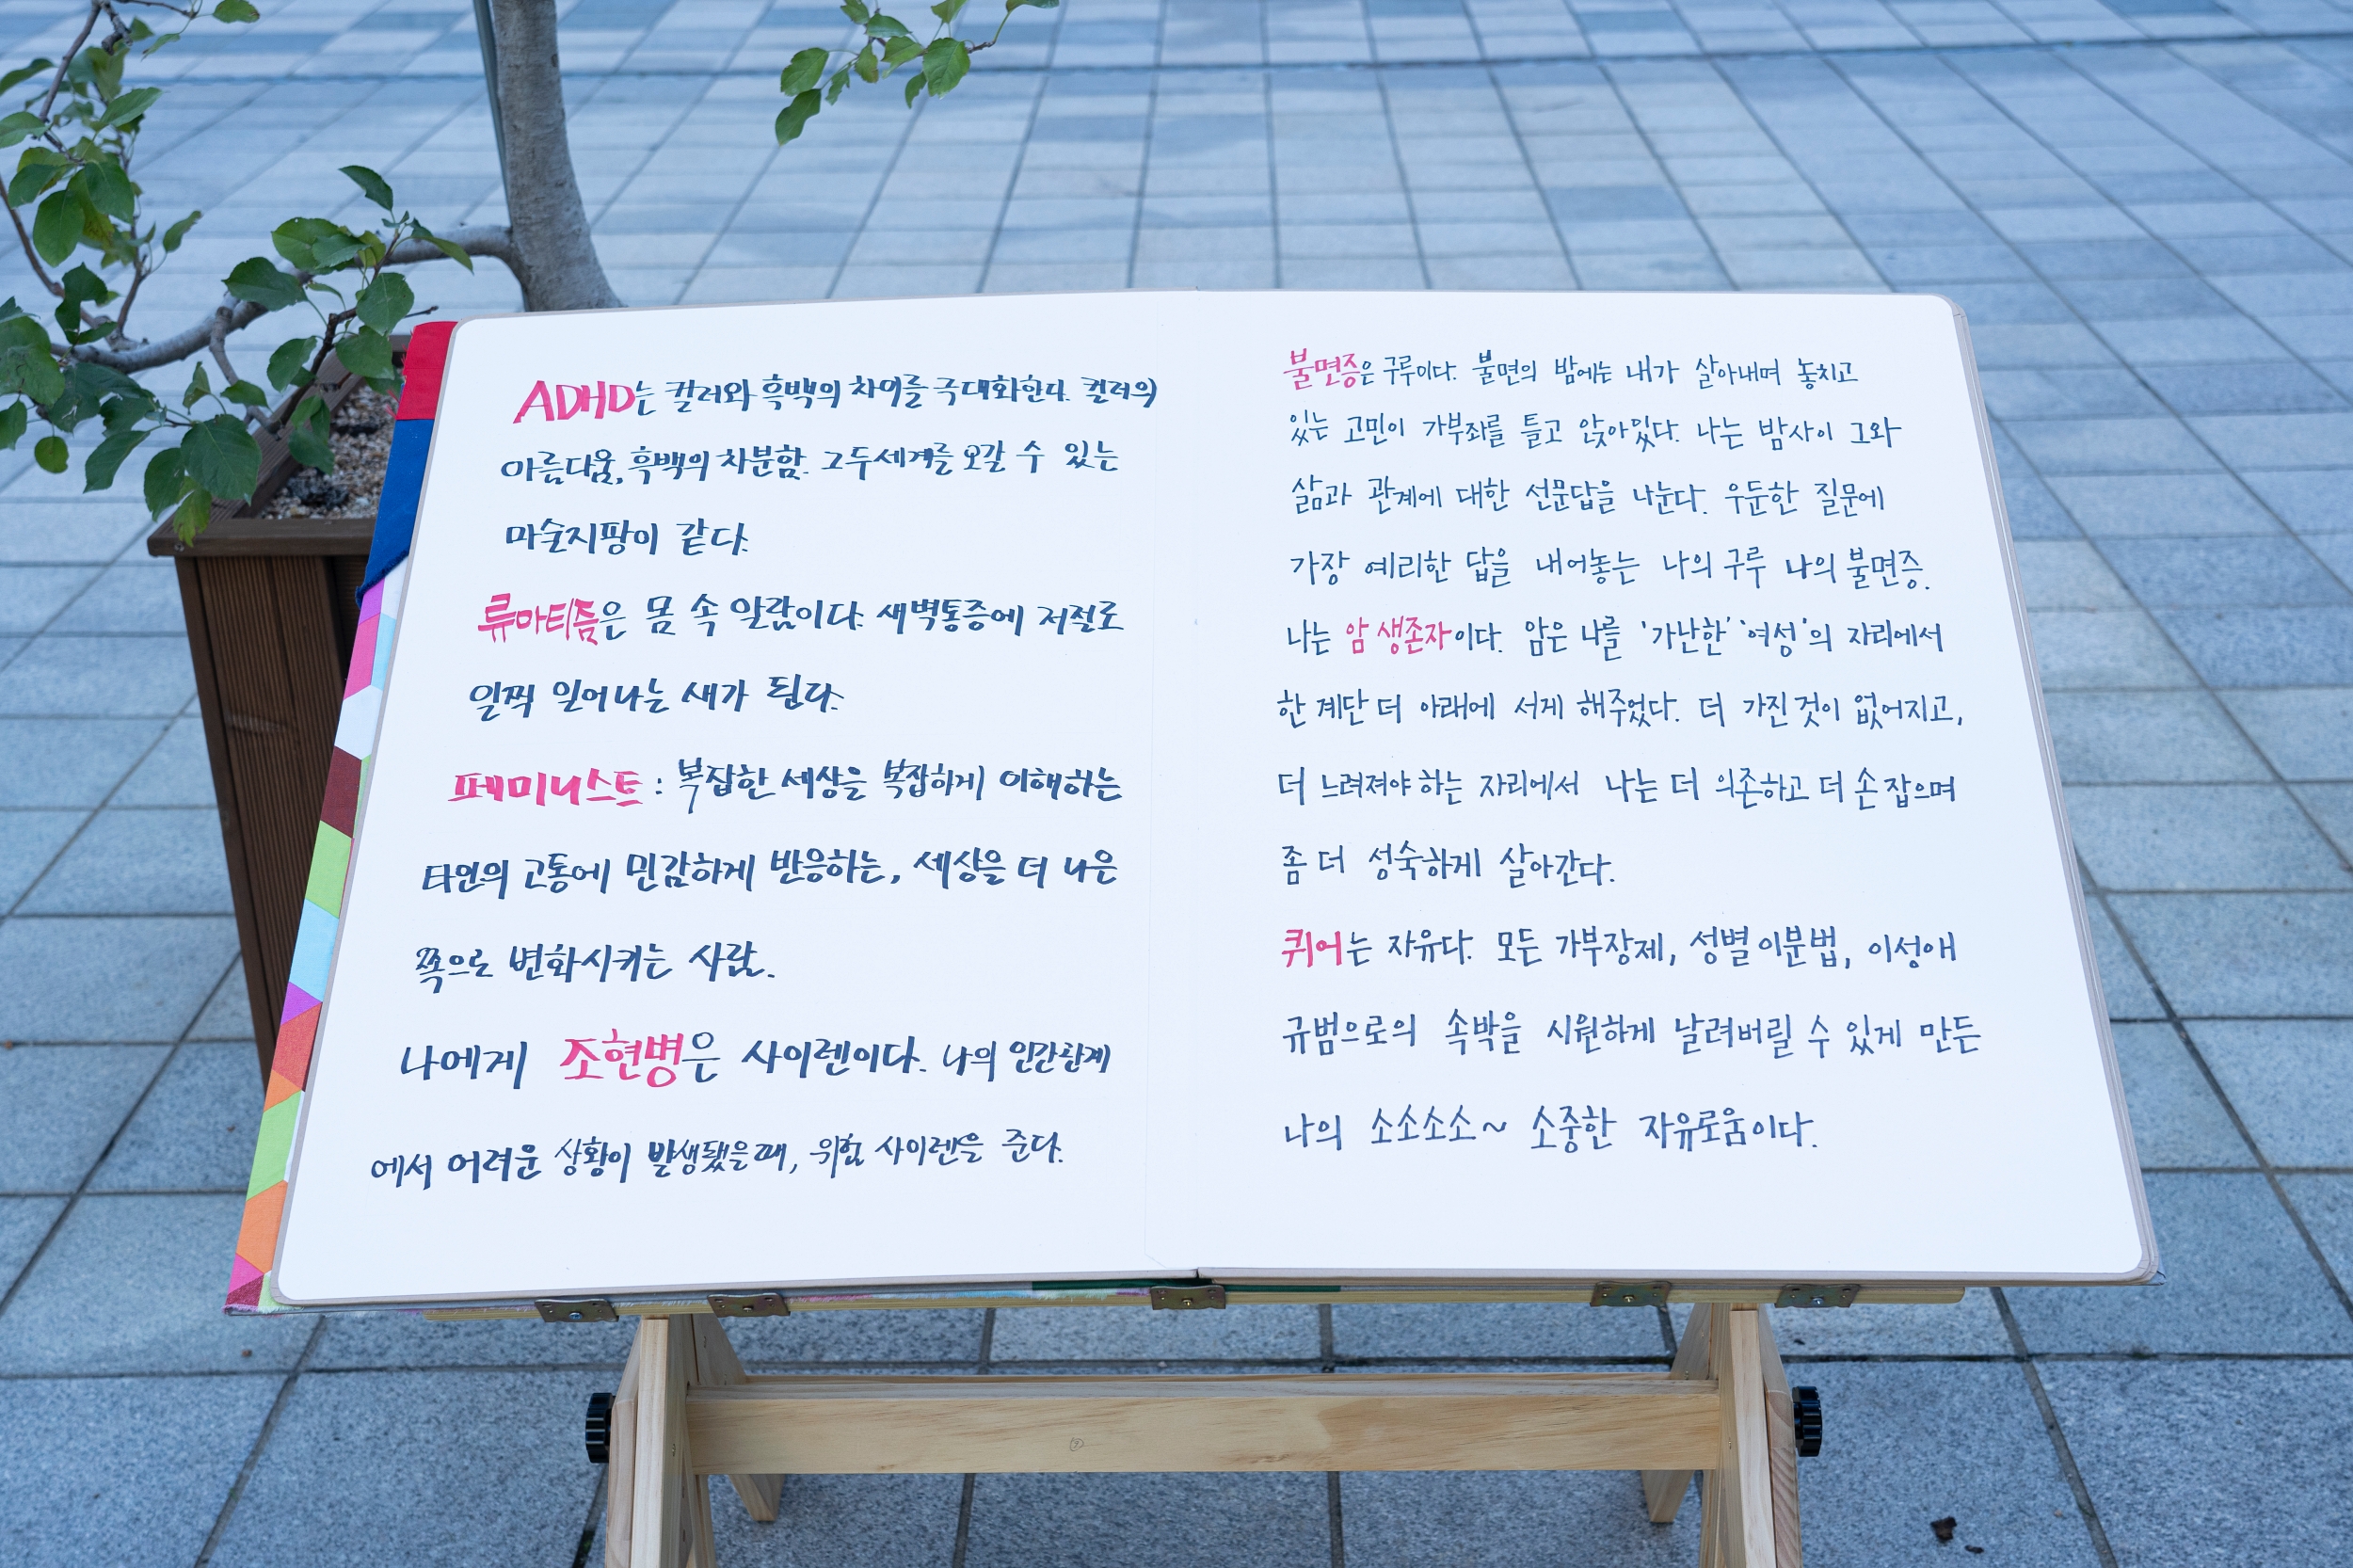 ADHD는 컬러와 흑백의 차이를 극대화한다. 컬러의
아름다움, 흑백의 차분함. 그 두 세계를 오갈 수 있는
마술지팡이 같다.
류마티즘은 몸 속 알람이다. 새벽통증에 저절로
일찍 일어나는 새가 된다.
페미니스트 : 복잡한 세상을 복잡하게 이해하는
타인의 고통에 민감하게 반응하는, 세상을 더 나은
쪽으로 변화시키는 사람.
나에게 조현병은 사이렌이다. 나의 인간관계
에서 어려운 상황이 발생됐을 때, 위험 사이렌을 준다.
불면증은 구루이다. 불면의 밤에는 내가 살아내며 놓치고
있는 고민이 가부좌를 틀고 앉아있다. 나는 밤사이 그와
삶과 관계에 대한 선문답을 나눈다. 우둔한 질문에
가장 예리한 답을 내어놓는 나의 구루 나의 불면증.
나는 암 생존자이다. 암은 나를 '가난한' '여성'의 자리에서
한 계단 더 아래에 서게 해주었다. 더 가진 것이 없어지고,
더 느려져야 하는 자리에서 나는 더 의존하고 더 손 잡으며
좀 더 성숙하게 살아간다.
퀴어는 자유다. 모든 가부장제, 성별이분법, 이성애
규범으로의 속박을 시원하게 날려버릴 수 있게 만든
나의 소소소소~ 소중한 자유로움이다.